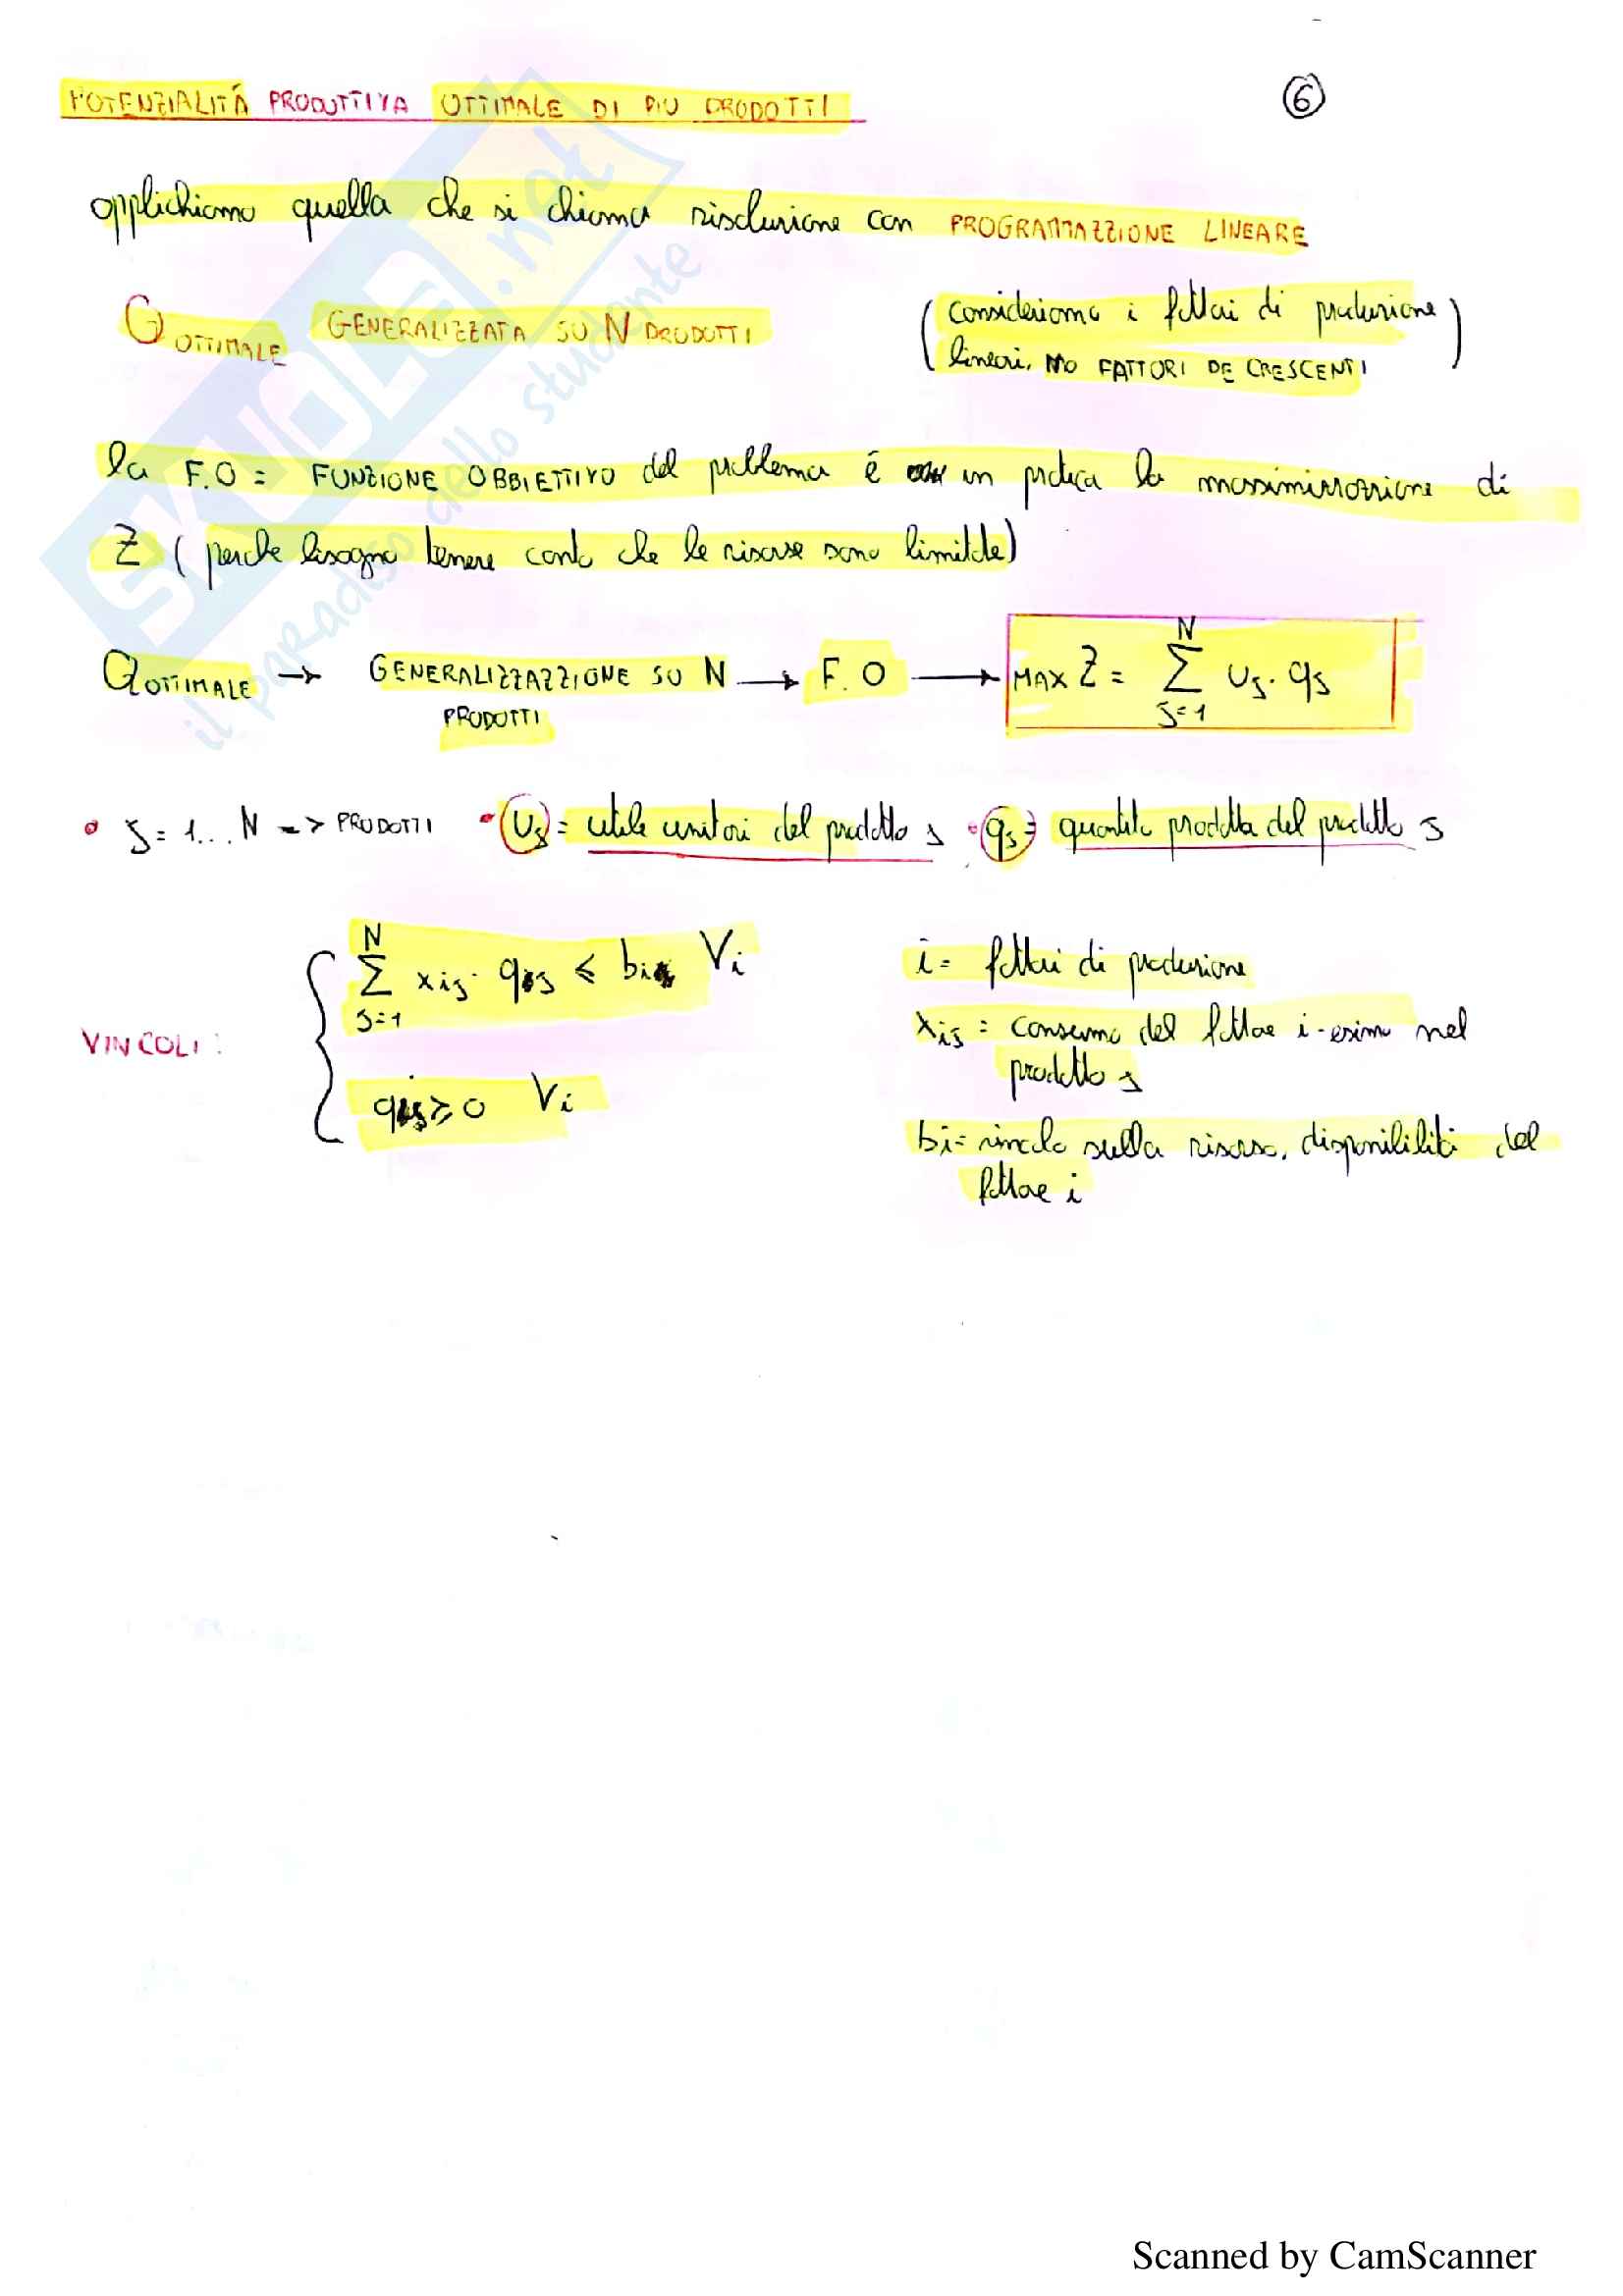 POTENZIALITÁ PRODUTTIVA OTTIMALE DI PIU PRODOTTI
6
applichiamo quella che si chiama risoluzione con PROGRAMMAZZIONE LINEARE
Q OTTIMALE GENERALIZZATA SU N PRODOTTI
(consideriamo i fattori di produzione
lineari, NO FATTORI DECRESCENTI)
la F.O = FUNZIONE OBBIETTIVO del problema é in pratica la massimizzazzione di
Z (perche bisogna tenere conto che le risorse sono limitate)
Q OTTIMALE → GENERALIZZAZZIONE SU N → F.O → MAX Z = N Σ J=1 UJ · qJ
PRODOTTI
• J = 1... N -> PRODOTTI • UJ = utile unitari del prodotto J • qJ = quantita prodotta del prodotto J
VINCOLI:
N Σ J=1 xiJ · qJ ≤ bi ∀i
qJ ≥ 0 ∀i
i = fattori di produzione
xiJ = consumo del fattore i-esimo nel
prodotto J
bi = vincolo sulla risorsa, disponibilità del
fattore i
SKUOLA.net
il paradiso dello studente
Scanned by CamScanner